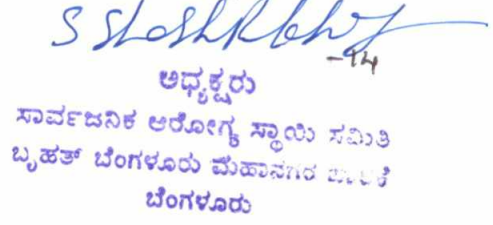 -14
ಅಧ್ಯಕ್ಷರು
ಸಾರ್ವಜನಿಕ ಆರೋಗ್ಯ ಸ್ಥಾಯಿ ಸಮಿತಿ
ಬೃಹತ್ ಬೆಂಗಳೂರು ಮಹಾನಗರ
ಬೆಂಗಳೂರು